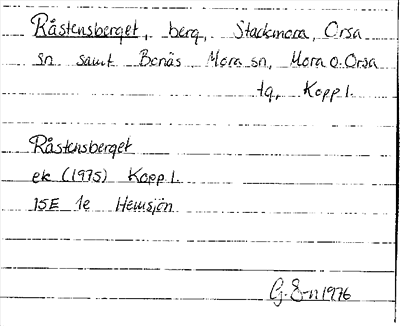 Råstensberget, berg, Stackmora, Orsa
sn samt Bonäs, Mora sn, Mora o. Orsa
tg, Kopp l.
Råstensberget
ek (1975) Kopp l.
15E 1e Hemsjön
G. E-n 1976